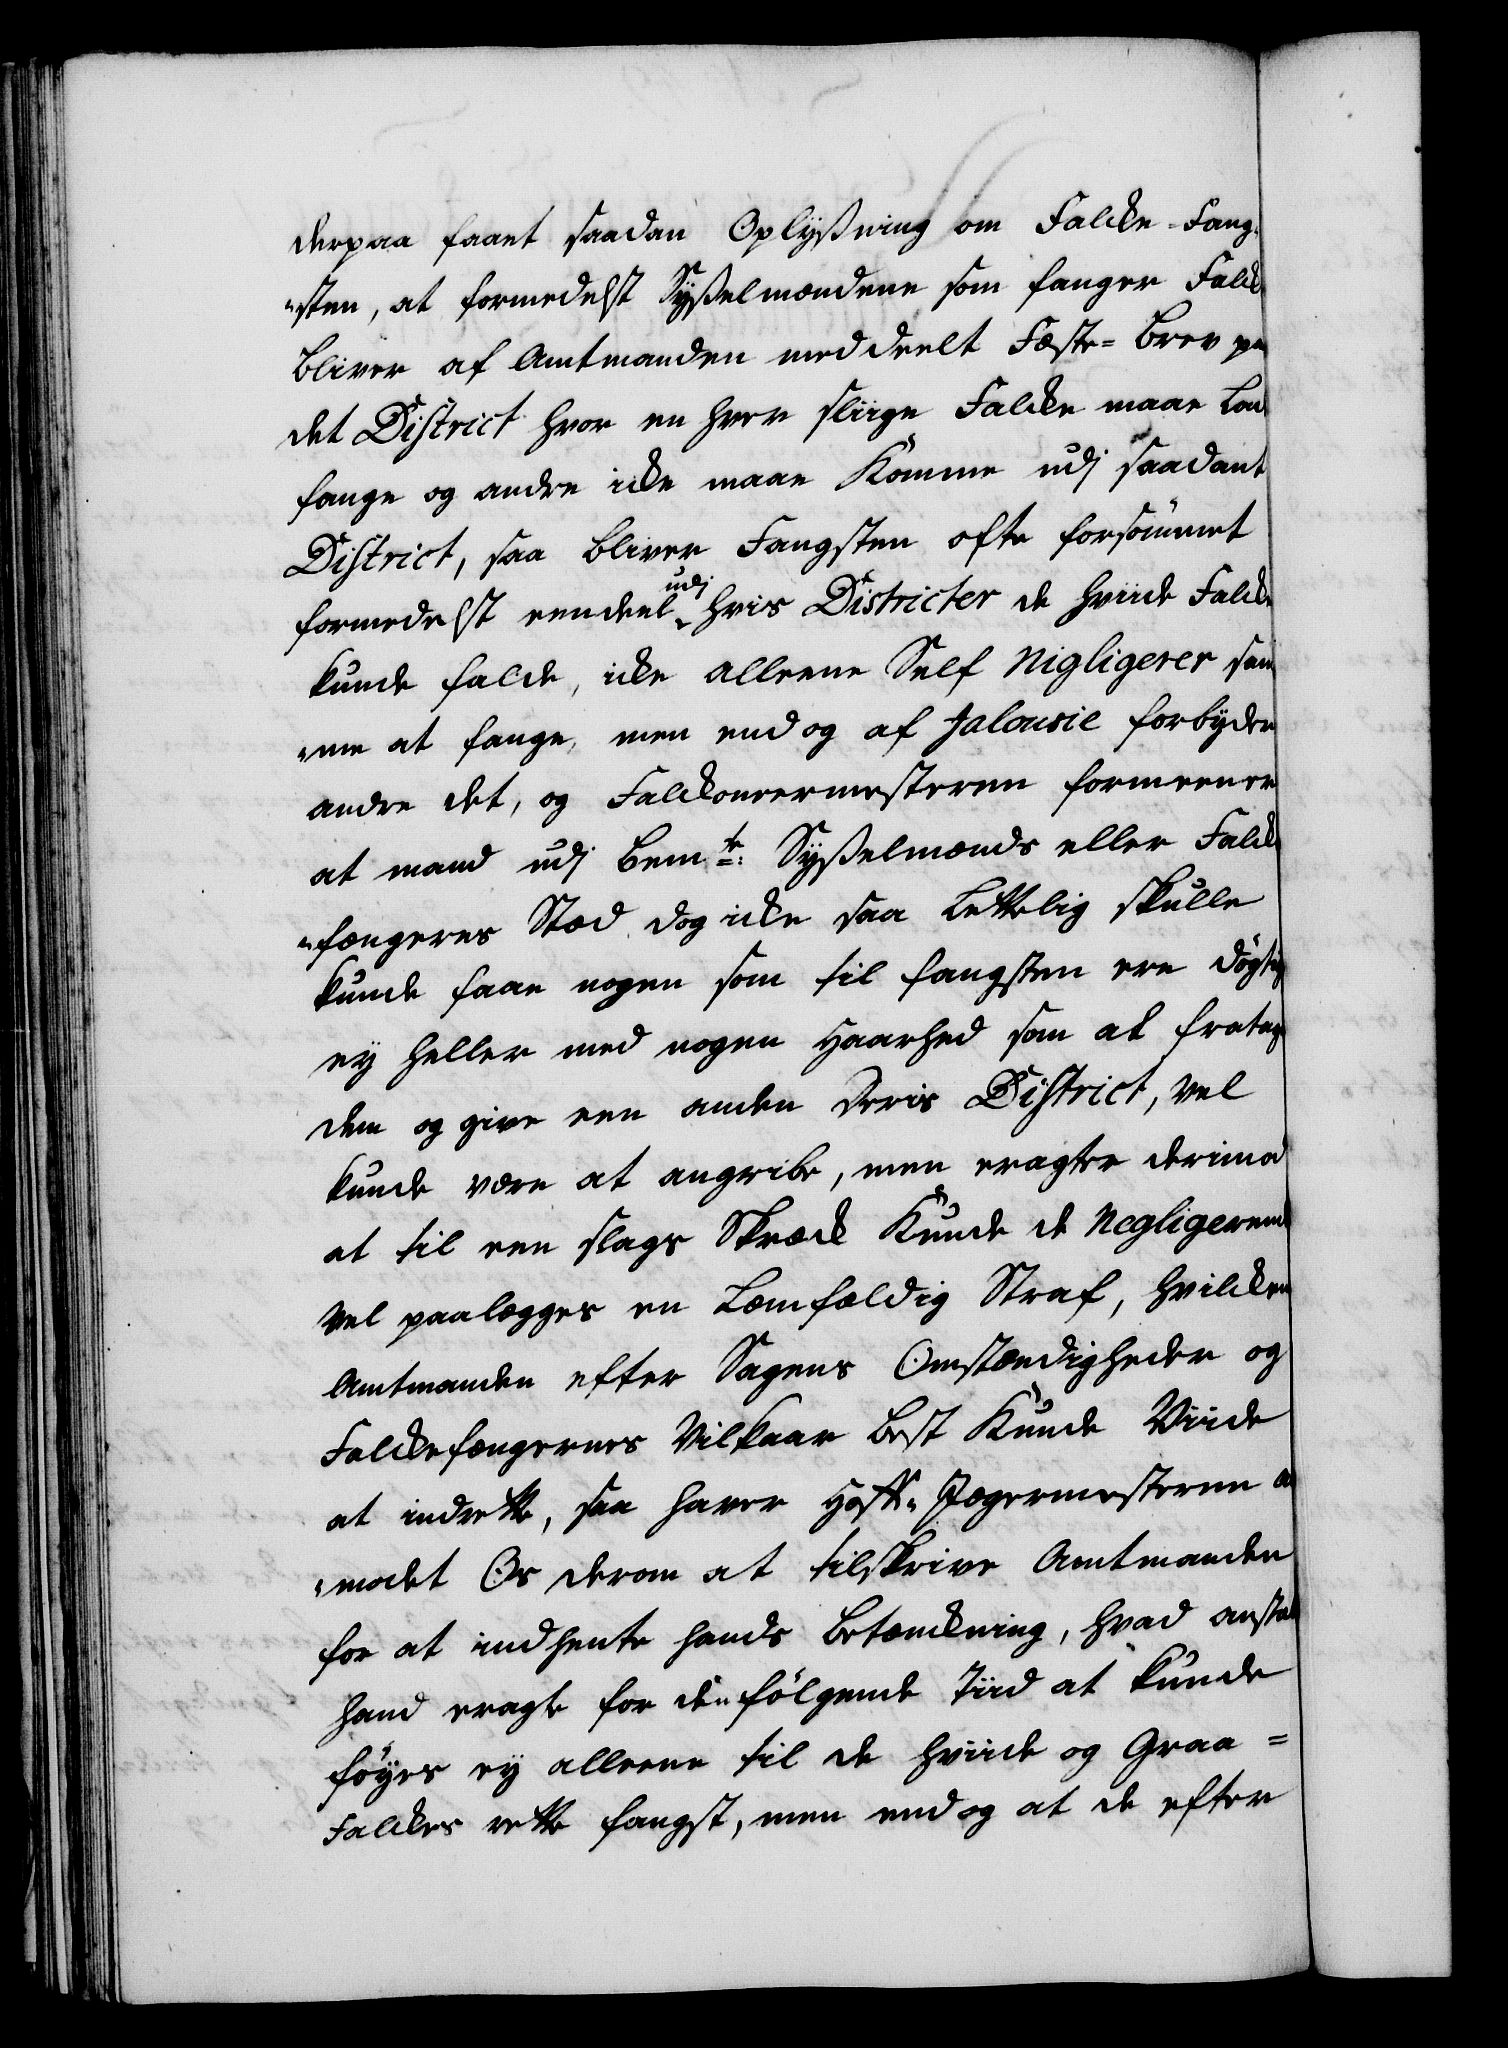 derpaa faaet saadan Oplysning om Falcke-Fang-
"sten, at formedelst Sysselmændene som fanger Falck
bliver af Amtmanden meddeelt Fæste= brev paa
det District hvor en hver sliige Falcke maae lade
fange og andre icke maae Komme udj saadant
District, saa bliver Fangsten ofte forsømmet
formedelst eendeel udj hvis Districter de hviide Falcke
kunde falde, icke alleene Self Nigligerer sam
"me at fange, men endog af Jalousie forbyder
andre det, og Falckoneermesteren formeener
at mand udj bemte: Sysselmænds eller Falcke
"fængeres Stæd dog icke saa lettelig skulle
kunde faae nogen som til fangsten ere døgtig
ey heller med nogen Haarhed som at fratage
dem og give een anden deris District, vel
kunde være at angribe, men eragter derimod
at til een slags Skræck Kunde de Negligerende
vel paalægges en Læmfældig Straf, hvilcken
Amtmanden efter Sagens Omstændigheder og
Falckefængernes Vilkaar best Kunde Viide
at indrette, saa haver Hoff" Jægermesteren an
"modet Os derom at tilskrive Amtmanden
for at indhente hands betænckning, hvad anstalt
hand eragte for den følgende Tiid at kunde
føyes ey alleene til de hviide og Graa=
Falckes rette fangst, men endog at de efter